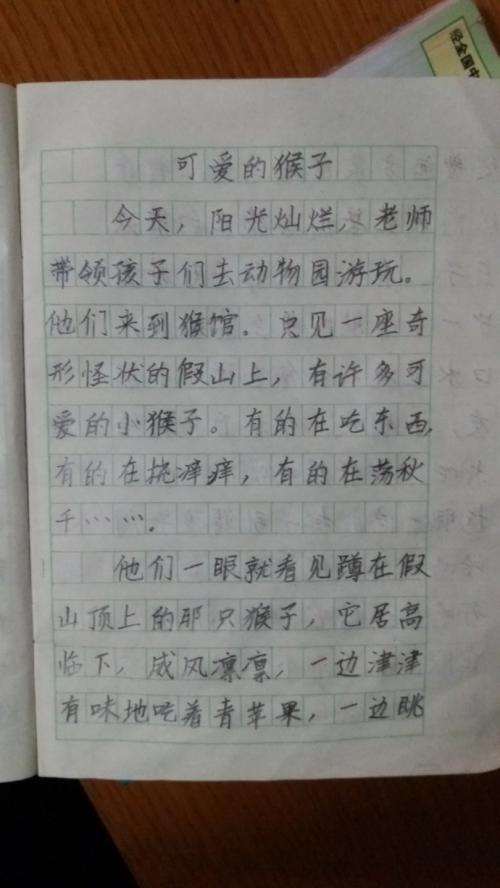 可爱的猴子
今天，阳光灿烂，老师
带领孩子们去动物园游玩。
他们来到猴馆。只见一座奇
形怪状的假山上，有许多可
爱的小猴子。有的在吃东西，
有的在挠痒痒，有的在荡秋
千……。
他们一眼就看见蹲在假
山顶上的那只猴子，它居高
临下，威风凛凛，一边津津
有味地吃着青苹果，一边眺